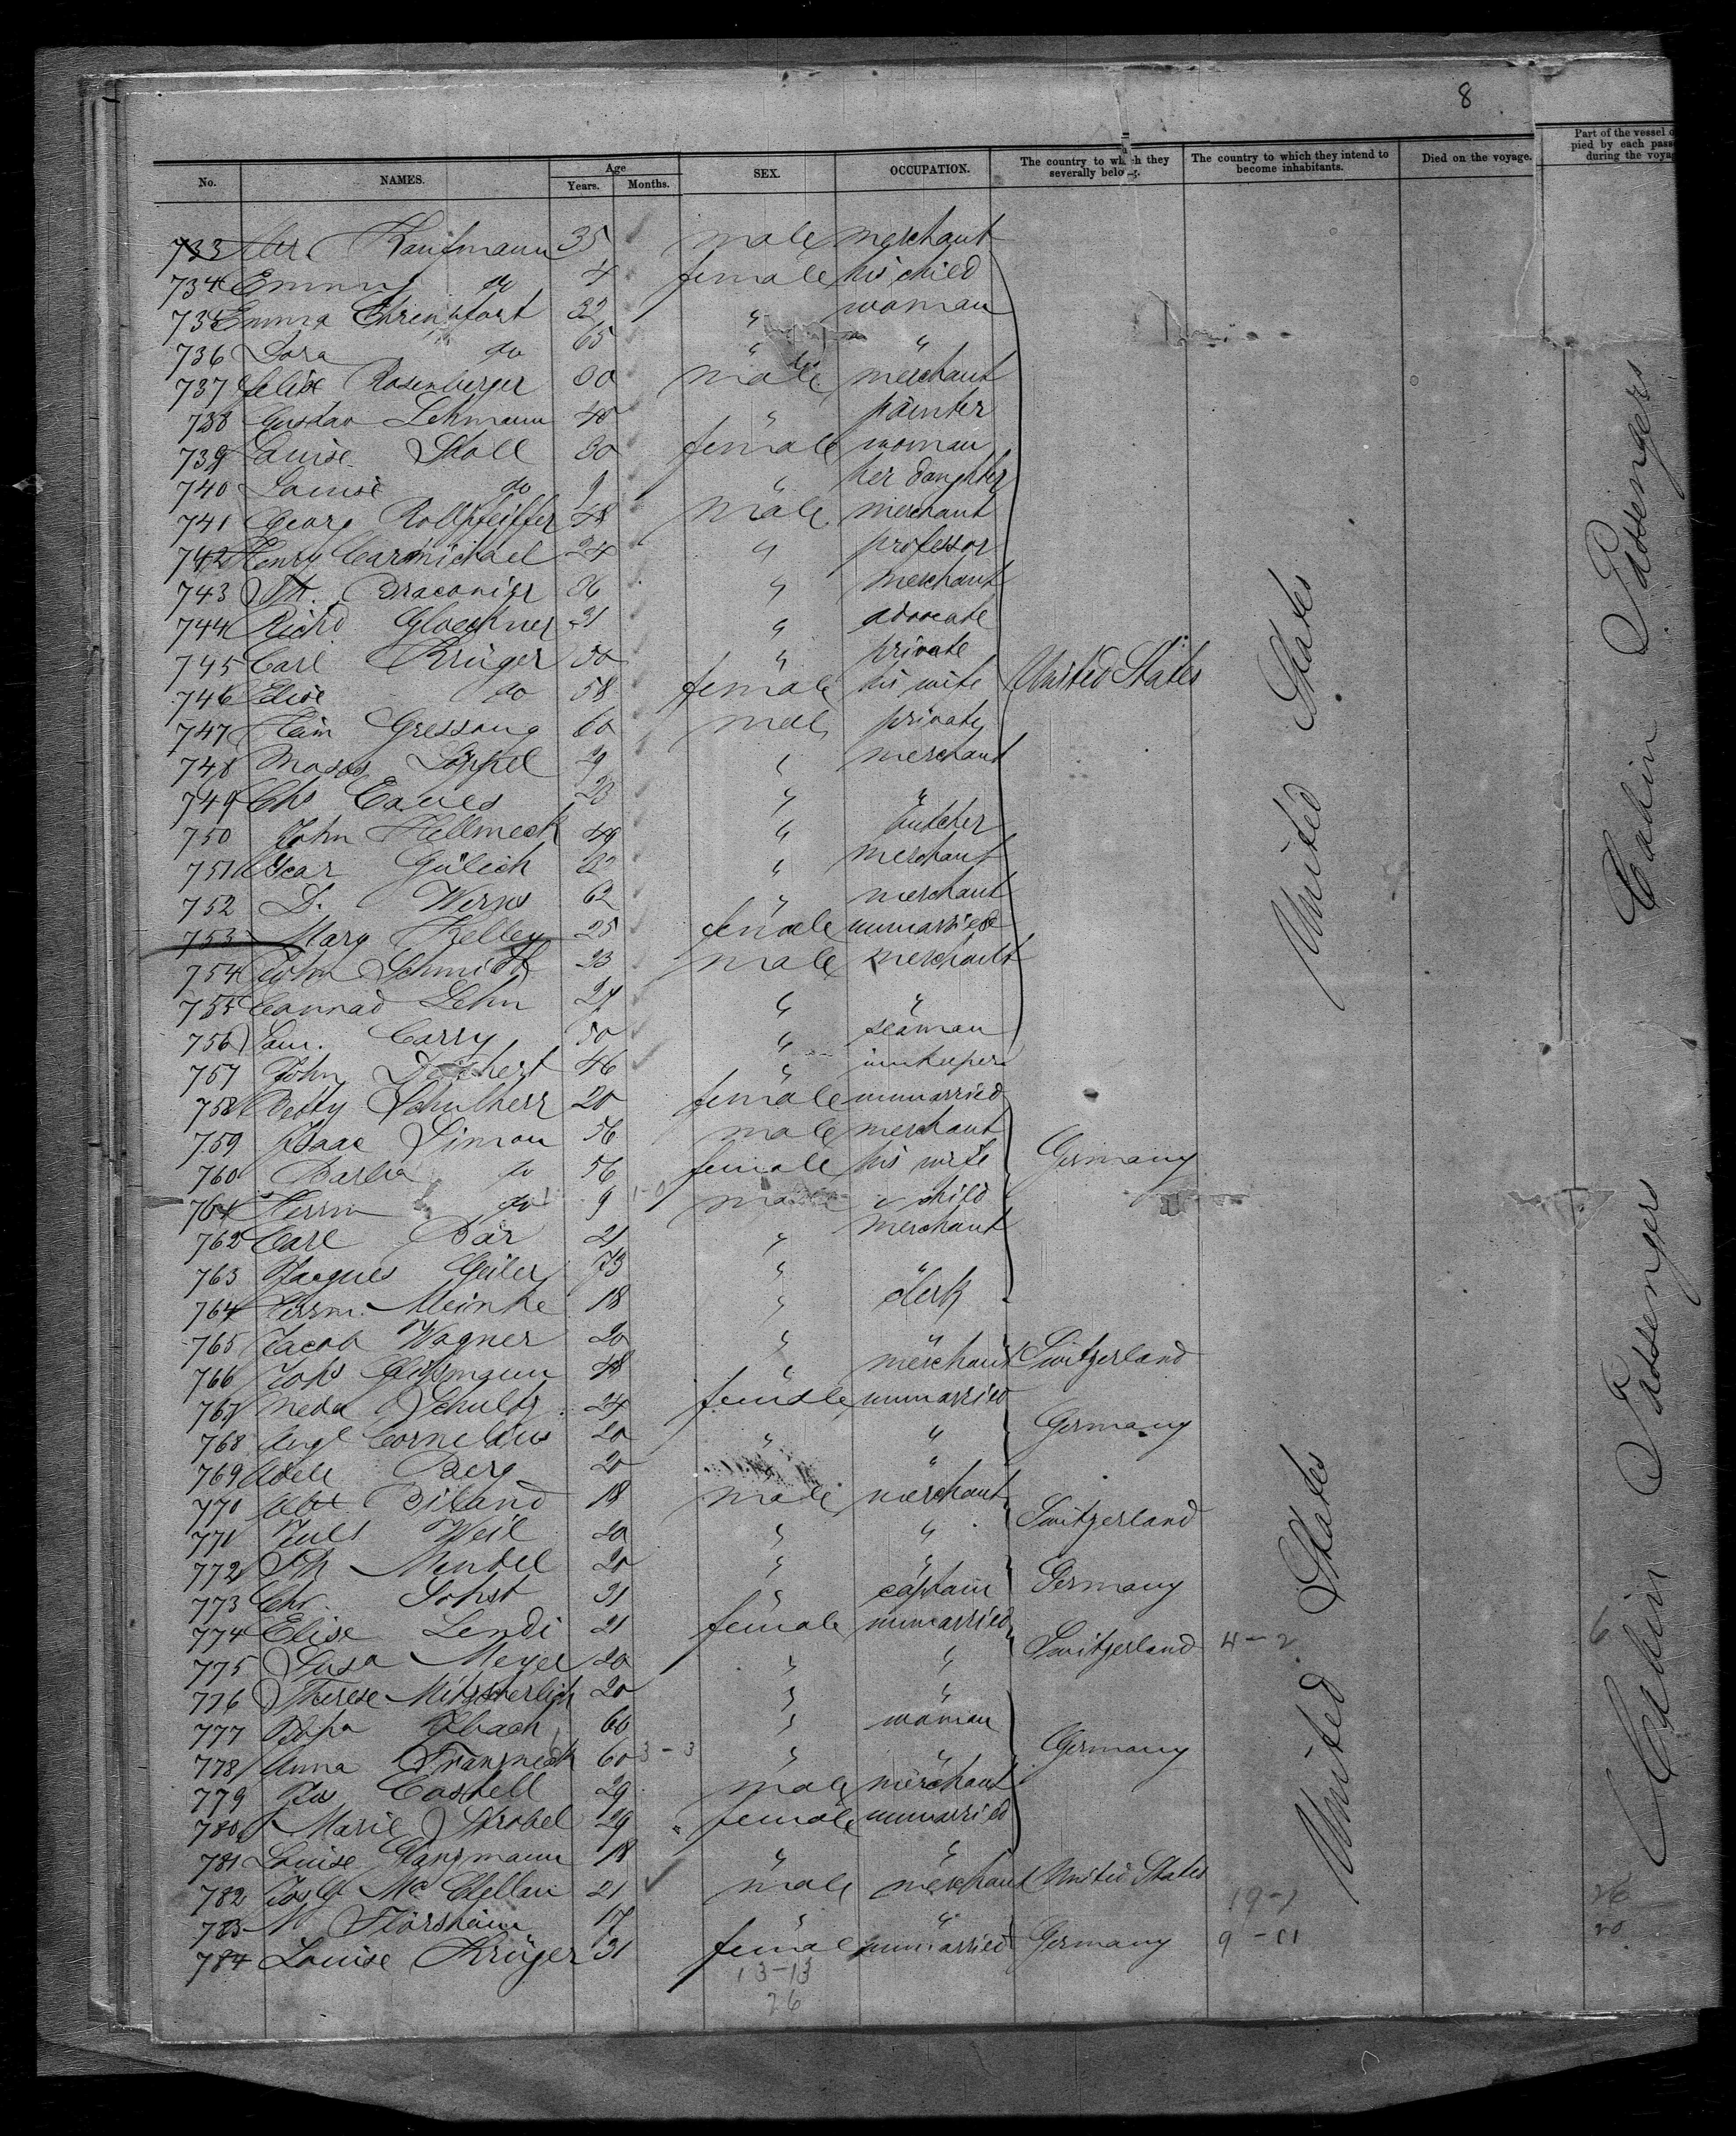 8
No. NAMES. Age Years. Months. SEX. OCCUPATION. The country to which they severally belong. The country to which they intend to become inhabitants. Died on the voyage. Part of the vessel during the
733 Kaufmann 35 male merchant
734 Emmy do 4 female his child
735 Emma 32 " woman
736 Dora do 65 " "
737 Rosenberger 30 male merchant
738 Gustav Lehmann 40 " painter
739 Louise Stoll 30 female woman
740 Louise do 9 " her daughter
741 Georg Rollpfeiffer 48 male merchant
742 Henry Carmichael 24 " professor
743 Draconier 36 " merchant
744 Richd Gloeckner 31 " advocate
745 Carl Krüger 50 " private
746 Elise do 58 female his wife United States
747 Gressang 60 male private
748 Moses 29 " merchant
749 Chs Eaves 23 " "
750 John Hellmeck 49 " butcher
751 Oscar Gülich 32 " merchant
752 D. Werns 62 " merchant
753 Mary Kelley 25 female unmarried
754 John Schmidt 23 male merchant
755 Conrad Lehn 27 " "
756 Sam. Carry 50 " seaman
757 John 46 " innkeeper
758 Betty Schulherr 20 female unmarried
759 Isaac Simon 56 male merchant
760 Barba do 56 female his wife Germany
761 Herrm do 9 male " child
762 Carl Bär 21 " merchant
763 Jacques Geiler 73 " "
764 Herrm. Meinke 18 " clerk
765 Jacob Wagner 20 " "
766 Johs 48 " merchant Switzerland
767 Meda Schultz 24 female unmarried
768 Angl Cornelius 20 " " Germany
769 Adele Berg 20 " "
770 Biland 18 male merchant
771 Juls Weil 20 " " Switzerland
772 Mendel 20 " "
773 Chr. Sohst 31 " captain Germany
774 Elise Lendi 21 female unmarried
775 Susa Meyer 20 " " Switzerland 4-2 6
776 Therese Mitscherlich 20 " "
777 60 " woman
778 Anna Franzneck 60 3-3 " " Germany
779 Castell 29 male merchant
780 Marie Strobel 29 female unmarried
781 Louise 18 " "
782 Mc Clellan 21 male merchant United States
783 Florsheim 17 " " 19-7 26
784 Louise Krüger 31 female unmarried Germany 9-11 20
13-13
26
United States
United States
Cabin Passengers
Cabin Passengers